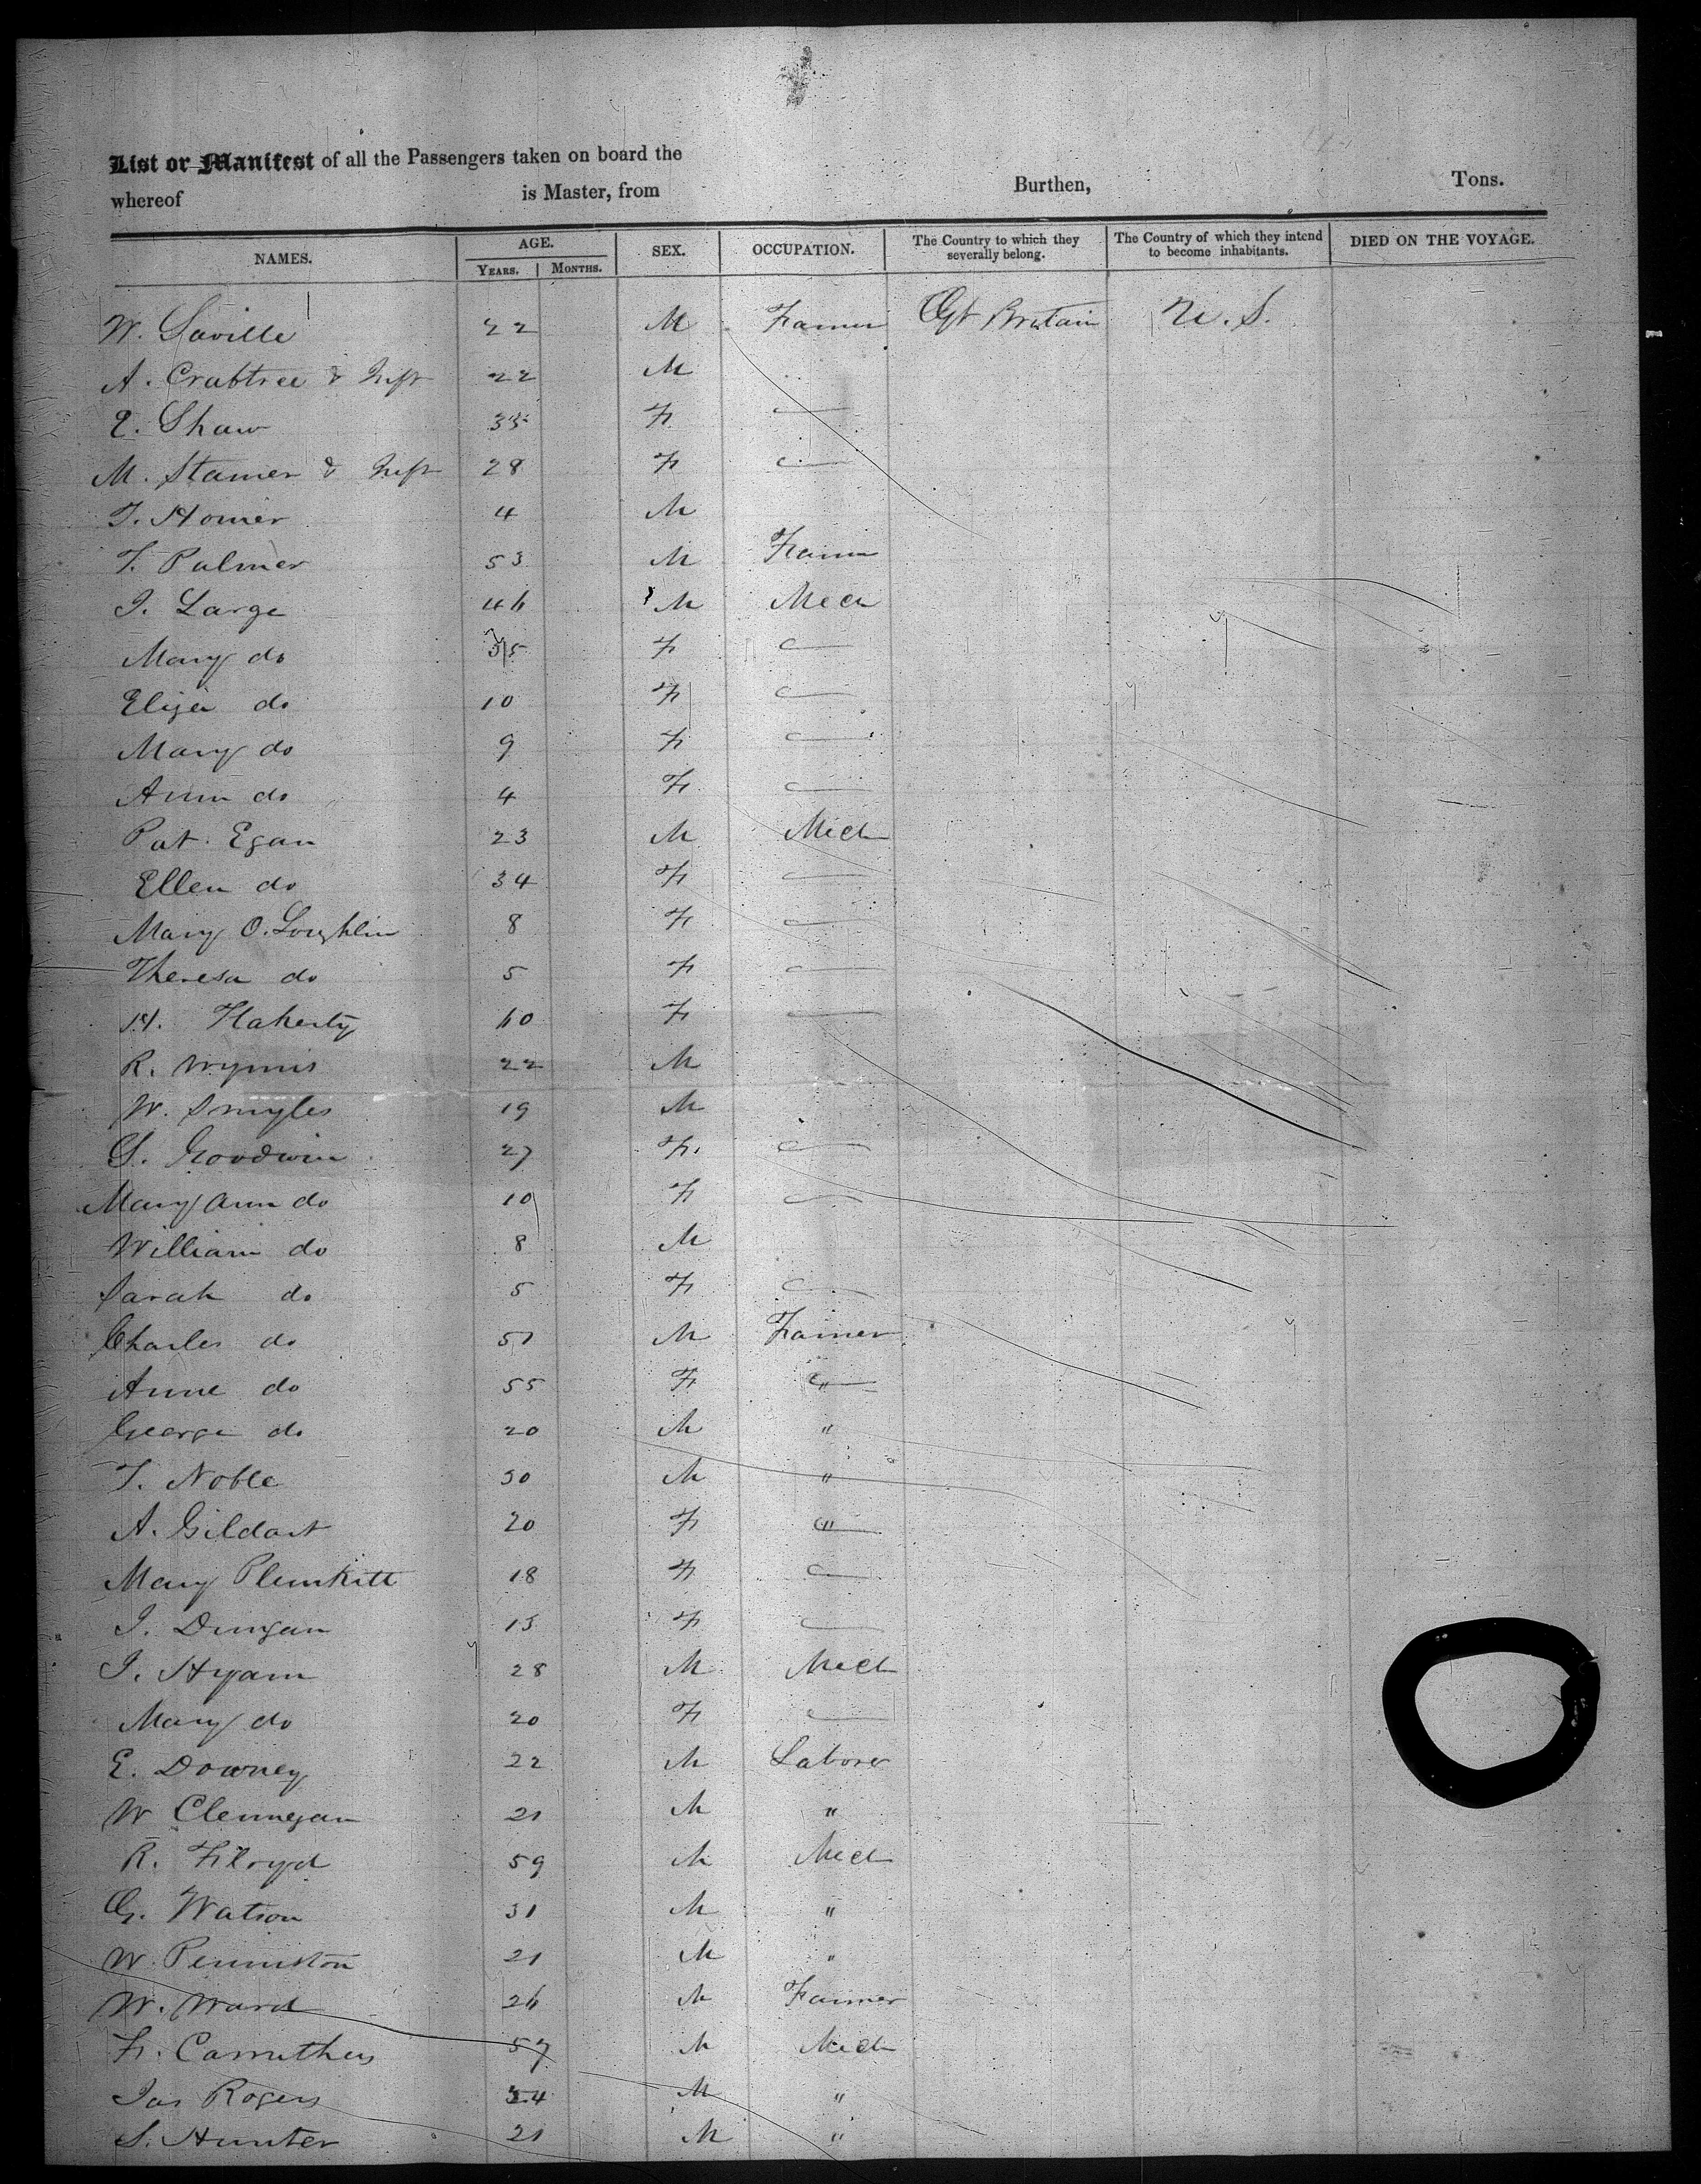 List or Manifest of all the Passengers taken on board the
whereof is Master, from Burthen, Tons.
NAMES. AGE. YEARS. MONTHS. SEX. OCCUPATION. The Country to which they severally belong. The Country of which they intend to become inhabitants. DIED ON THE VOYAGE.
W. Saville 22 M Farmer Gt Britain U.S.
A. Crabtree & Inft 22 M
E. Shaw 35 F
M. Stamer & Inft 28 F
T. Homer 4 M
T. Palmer 53 M Farmer
J. Large 46 M Mech
Mary do 35 F
Eliza do 10 F
Mary do 9 F
Ann do 4 F
Pat. Egan 23 M Mech
Ellen do 34 F
Mary O.Loughlin 8 F
Theresa do 5 F
H. Flaherty 60 F
R. Wynnis 22 M
W. Smyles 19 M
S. Goodwin 27 F.
Mary Ann do 10 F
William do 8 M
Sarah do 5 F
Charles do 51 M Farmer
Anne do 55 F "
George do 20 M "
T. Noble 50 M "
A. Gildart 20 F "
Mary Plunkitt 18 F
J. Dungan 15 F
J. Hyam 28 M Mech
Mary do 20 F
E. Downey 22 M Laborer
W Clennegan 21 M "
R. Floyd 59 M Mech
G. Watson 31 M "
W. Penniston 21 M "
W. Ward 26 M Farmer
F. Carruthers 57 M Mech
Jas Rogers 34 M "
S. Hunter 21 M "